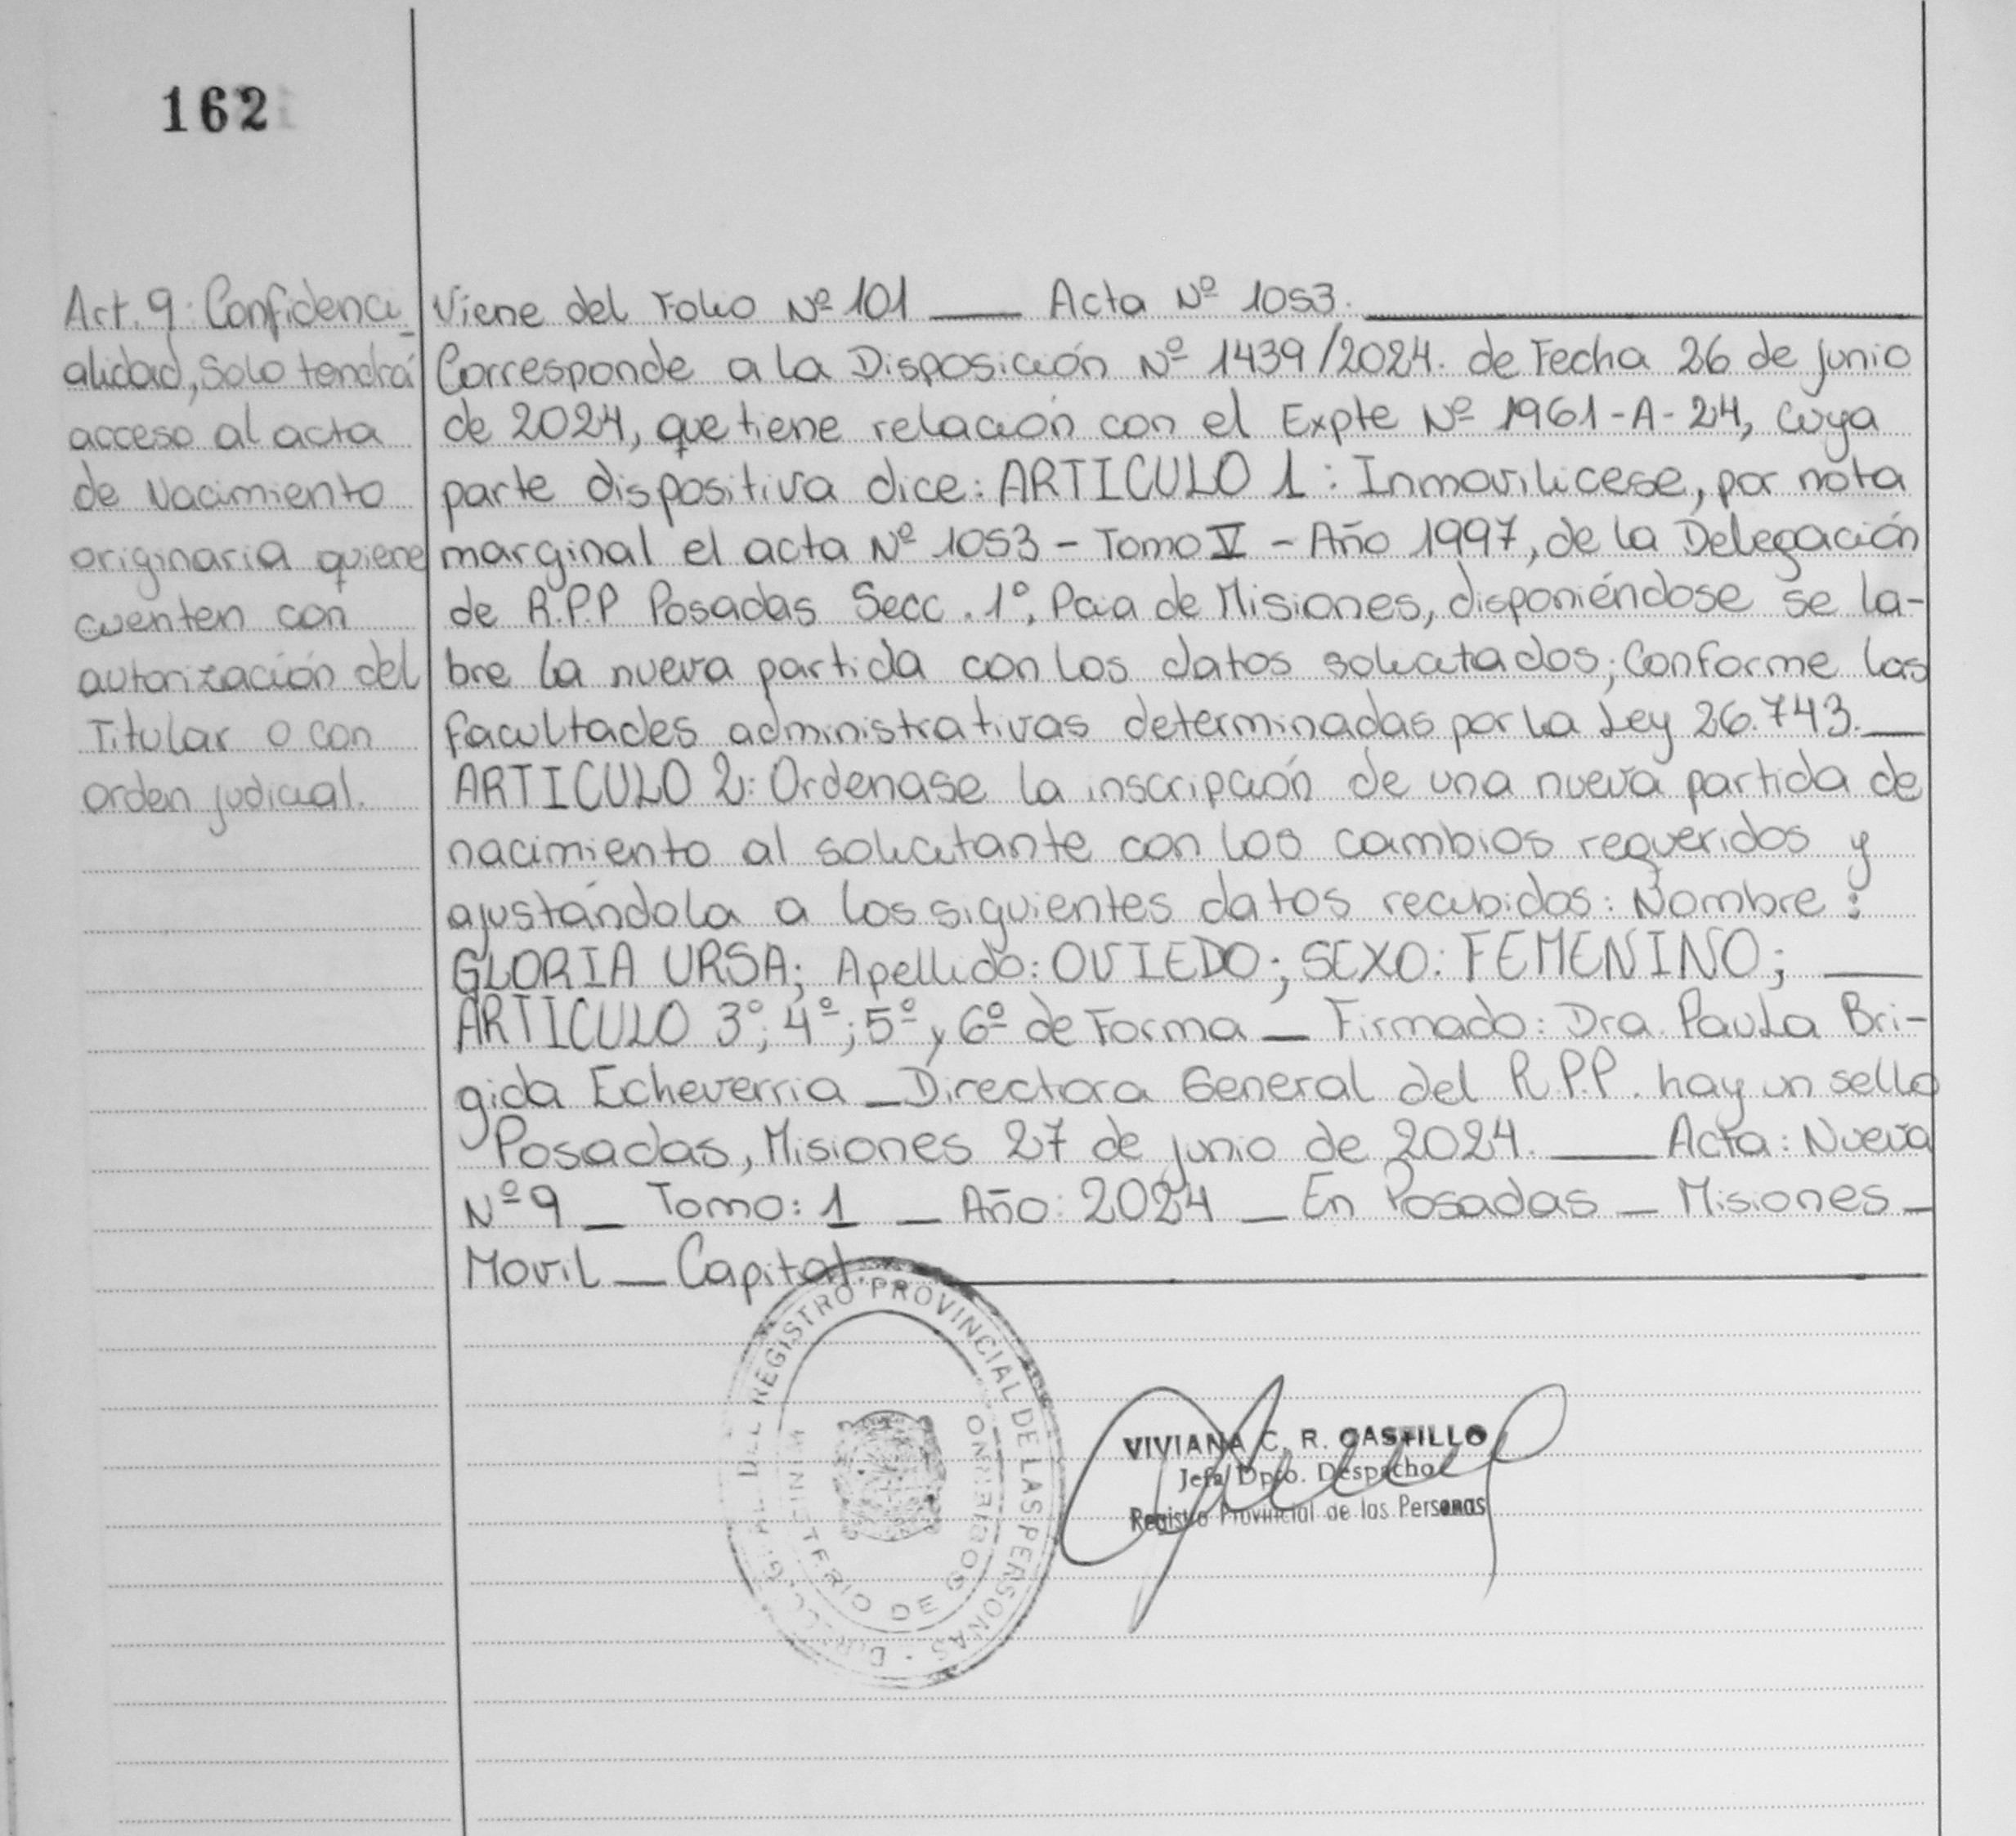 162
Art. 9: Confidenci
alidad, Solo tendrá
acceso al acta
de Nacimiento
originaria quiene
cuenten con
autorización del
Titular o con
orden judicial.
Viene del Folio Nº 101 ___ Acta Nº 1053.
Corresponde a la Disposición Nº 1439/2024. de Fecha 26 de junio
de 2024, que tiene relación con el Expte Nº 1961-A-24, cuya
parte dispositiva dice: ARTICULO 1: Inmovilicese, por nota
marginal el acta Nº 1053 - Tomo V - Año 1997, de la Delegación
de R.P.P Posadas Secc. 1º, Pcia de Misiones, disponiéndose se la-
bre la nueva partida con los datos solicitados; Conforme las
facultades administrativas determinadas por la Ley 26.743. __
ARTICULO 2: Ordenase la inscripción de una nueva partida de
nacimiento al solicitante con los cambios requeridos y
ajustándola a los siguientes datos recibidos: Nombre:
GLORIA URSA; Apellido: OVIEDO; SEXO: FEMENINO; ___
ARTICULO 3º; 4º; 5º y 6º de Forma _ Firmado: Dra. Paula Bri-
gida Echeverria _ Directora General del R.P.P. hay un sello
Posadas, Misiones 27 de junio de 2024. ___ Acta: Nueva
Nº 9 _ Tomo: 1 _ Año: 2024 _ En Posadas _ Misiones _
Movil _ Capital.
DEL REGISTRO PROVINCIAL DE LAS PERSONAS
MINISTERIO DE GOBIERNO
VIVIANA C. R. CASTILLO
Jefa Dpto. Despacho
Registro Provincial de las Personas